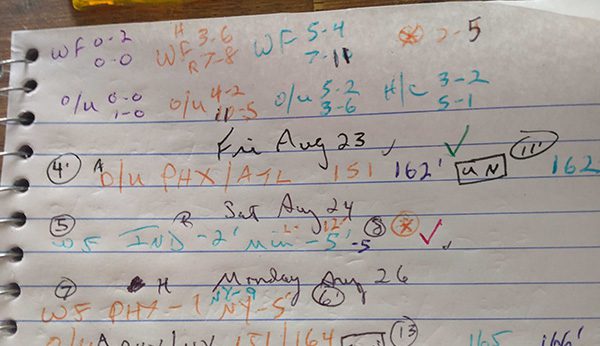 H
WF 0-2 WF 3-6 WF 5-4 2-5
0-0 R 7-8 7-11
O/U 0-0 O/U 4-2 O/U 5-2 H/C 3-2
1-0 11-5 3-6 5-1
Fri Aug 23
4 A O/U PHX/ATL 151 162' UN 11 162
R Sat Aug 24
5 WF IND -2' Min -5' -5 8
7 H Monday Aug 26
NY-9 6
WF PHX -1 NY-5
151/164 13 165 166'